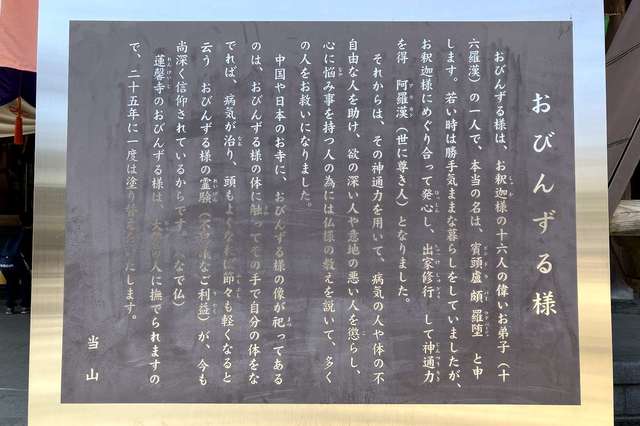 おびんずる様
おびんずる様は、お釈迦様の十六人の偉いお弟子（十
六羅漢）の一人で、本当の名は、賓頭盧頗羅堕と申
します。若い時は勝手気ままな暮らしをしていましたが、
お釈迦様にめぐり合って発心し、出家修行して神通力
を得 阿羅漢（世に尊き人）となりました。
それからは、その神通力を用いて、病気の人や体の不
自由な人を助け、欲の深い人や意地の悪い人を懲らし、
心に悩み事を持つ人の為には仏様の教えを説いて、多く
の人をお救いになりました。
中国や日本のお寺に、おびんずる様の像が祀ってある
のは、おびんずる様の体に触ってその手で自分の体をな
でれば、病気が治り、頭もよくなり、節々も軽くなると
云う おびんずる様の霊験（不思議なご利益）が、今も
尚深く信仰されているからです。（なで仏）
蓮馨寺のおびんずる様は、大勢の人に撫でられますの
で、二十五年に一度は塗り替えをいたします。
当山